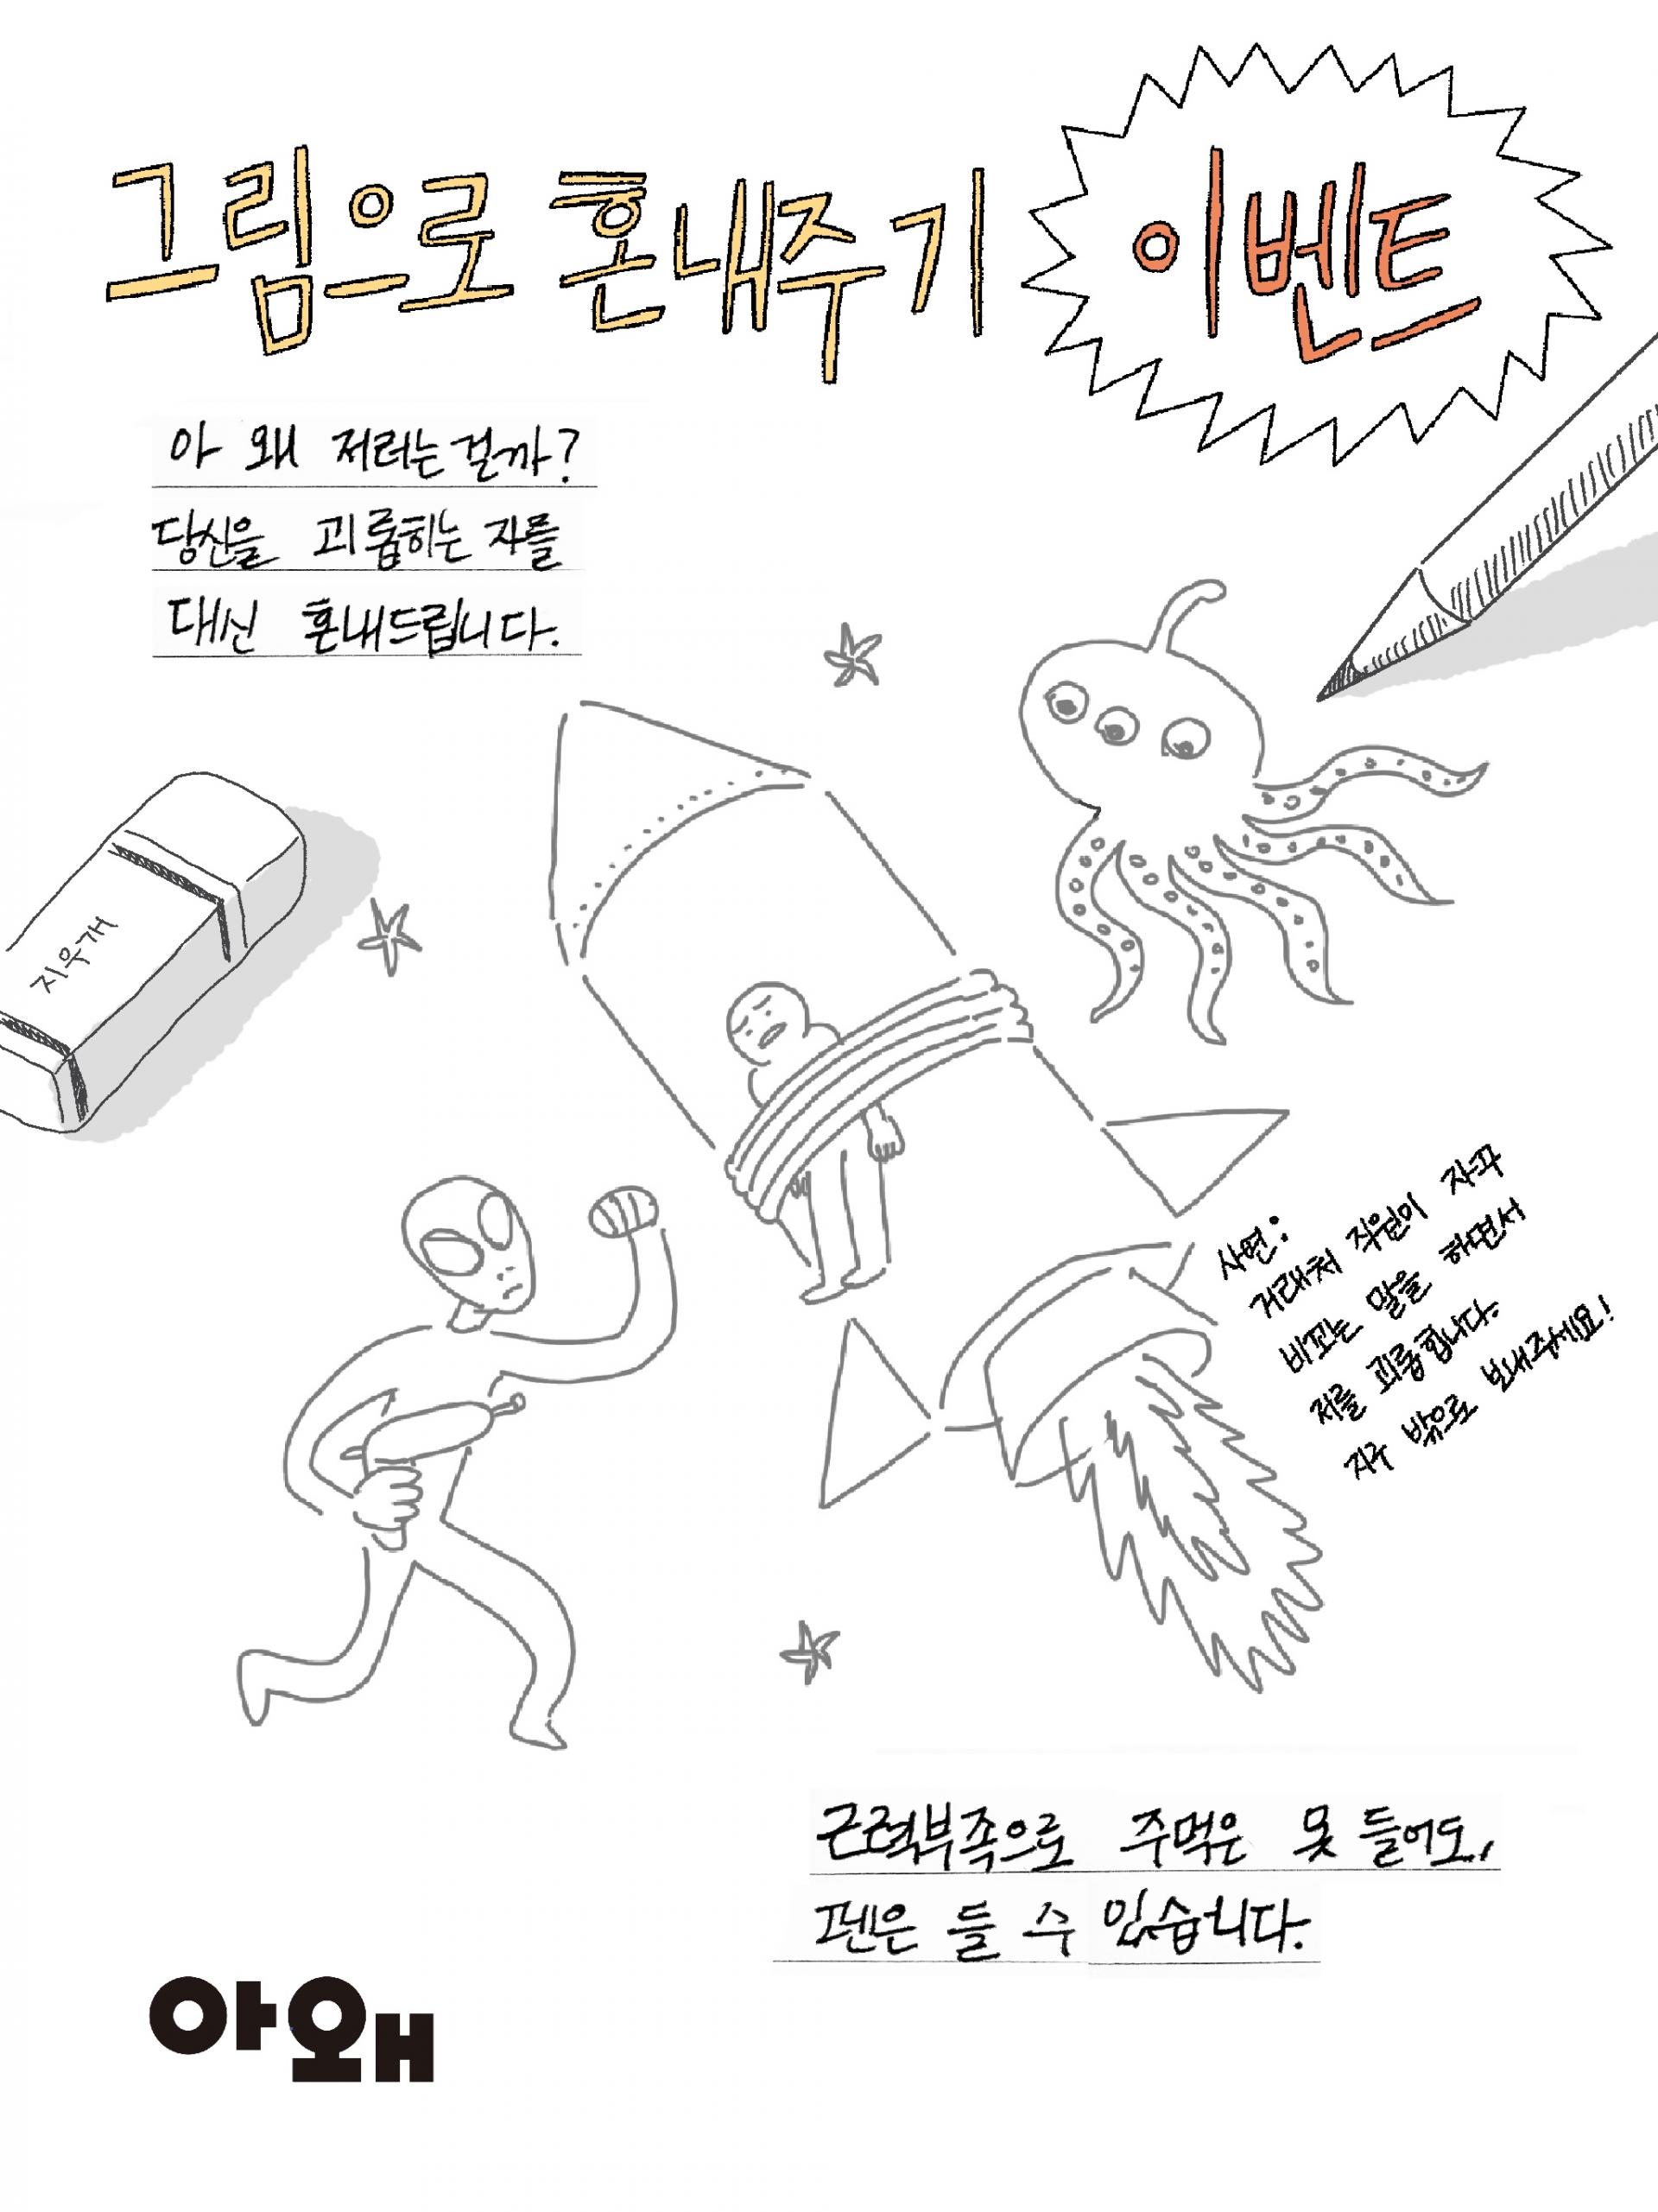 그림으로 혼내주기 이벤트
아 왜 저러는걸까?
당신을 괴롭히는 자를
대신 혼내드립니다.
지우개
사연:
거래처 직원이 자꾸
비꼬는 말을 하면서
저를 괴롭힙니다.
지구 밖으로 보내주세요!
근력부족으로 주먹은 못 들어도,
펜은 들 수 있습니다.
아왜